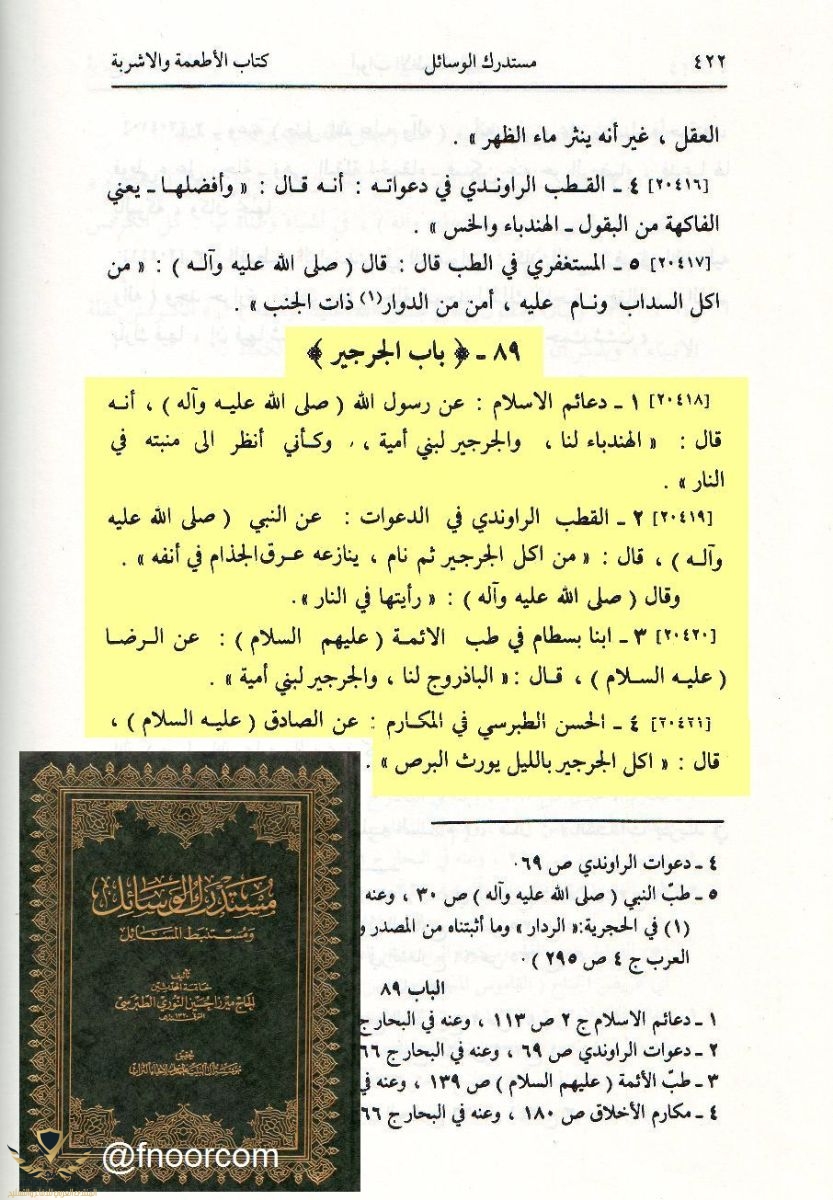 ٤٢٢ مستدرك الوسائل كتاب الأطعمة والاشربة
العقل ، غير أنه ينثر ماء الظهر » .
[٢٠٤١٦] ٤ ـ القطب الراوندي في دعواته : أنه قال : « وأفضلها ـ يعني
الفاكهة من البقول ـ الهندباء والخس » .
[٢٠٤١٧] ٥ ـ المستغفري في الطب قال : قال ( صلى الله عليه وآله ) : « من
اكل السداب ونام عليه ، أمن من الدوار(١) ذات الجنب » .
٨٩ ـ ﴿ باب الجرجير ﴾
[٢٠٤١٨] ١ ـ دعائم الاسلام : عن رسول الله ( صلى الله عليه وآله ) ، أنه
قال : « الهندباء لنا ، والجرجير لبني أمية ، وكأني أنظر الى منبته في
النار » .
[٢٠٤١٩] ٢ ـ القطب الراوندي في الدعوات : عن النبي ( صلى الله عليه
وآله ) ، قال : « من اكل الجرجير ثم نام ، ينازعه عرق الجذام في أنفه » .
وقال ( صلى الله عليه وآله ) : « رأيتها في النار » .
[٢٠٤٢٠] ٣ ـ ابنا بسطام في طب الائمة ( عليهم السلام ) : عن الرضا
( عليه السلام ) ، قال : « الباذروج لنا ، والجرجير لبني أمية » .
[٢٠٤٢١] ٤ ـ الحسن الطبرسي في المكارم : عن الصادق ( عليه السلام ) ،
قال : « اكل الجرجير بالليل يورث البرص » .
٤ ـ دعوات الراوندي ص ٦٩ .
٥ ـ طبّ النبي ( صلى الله عليه وآله ) ص ٣٠ ، وعنه
(١) في الحجرية: « الردار » وما أثبتناه من المصدر و
العرب ج ٤ ص ٢٩٥ ) .
الباب ٨٩
١ ـ دعائم الاسلام ج ٢ ص ١١٣ ، وعنه في البحار ج
٢ ـ دعوات الراوندي ص ٦٩ ، وعنه في البحار ج ٦٦
٣ ـ طبّ الأئمة ( عليهم السلام ) ص ١٣٩ ، وعنه في
٤ ـ مكارم الأخلاق ص ١٨٠ ، وعنه في البحار ج ٦٦
مستدرك الوسائل
ومستنبط المسائل
تأليف
خاتمة المحدثين
الحاج ميرزا حسين النوري الطبرسي
المتوفى ١٣٢٠ هـ
تحقيق
مؤسسة آل البيت عليهم السلام لإحياء التراث
@fnoorcom